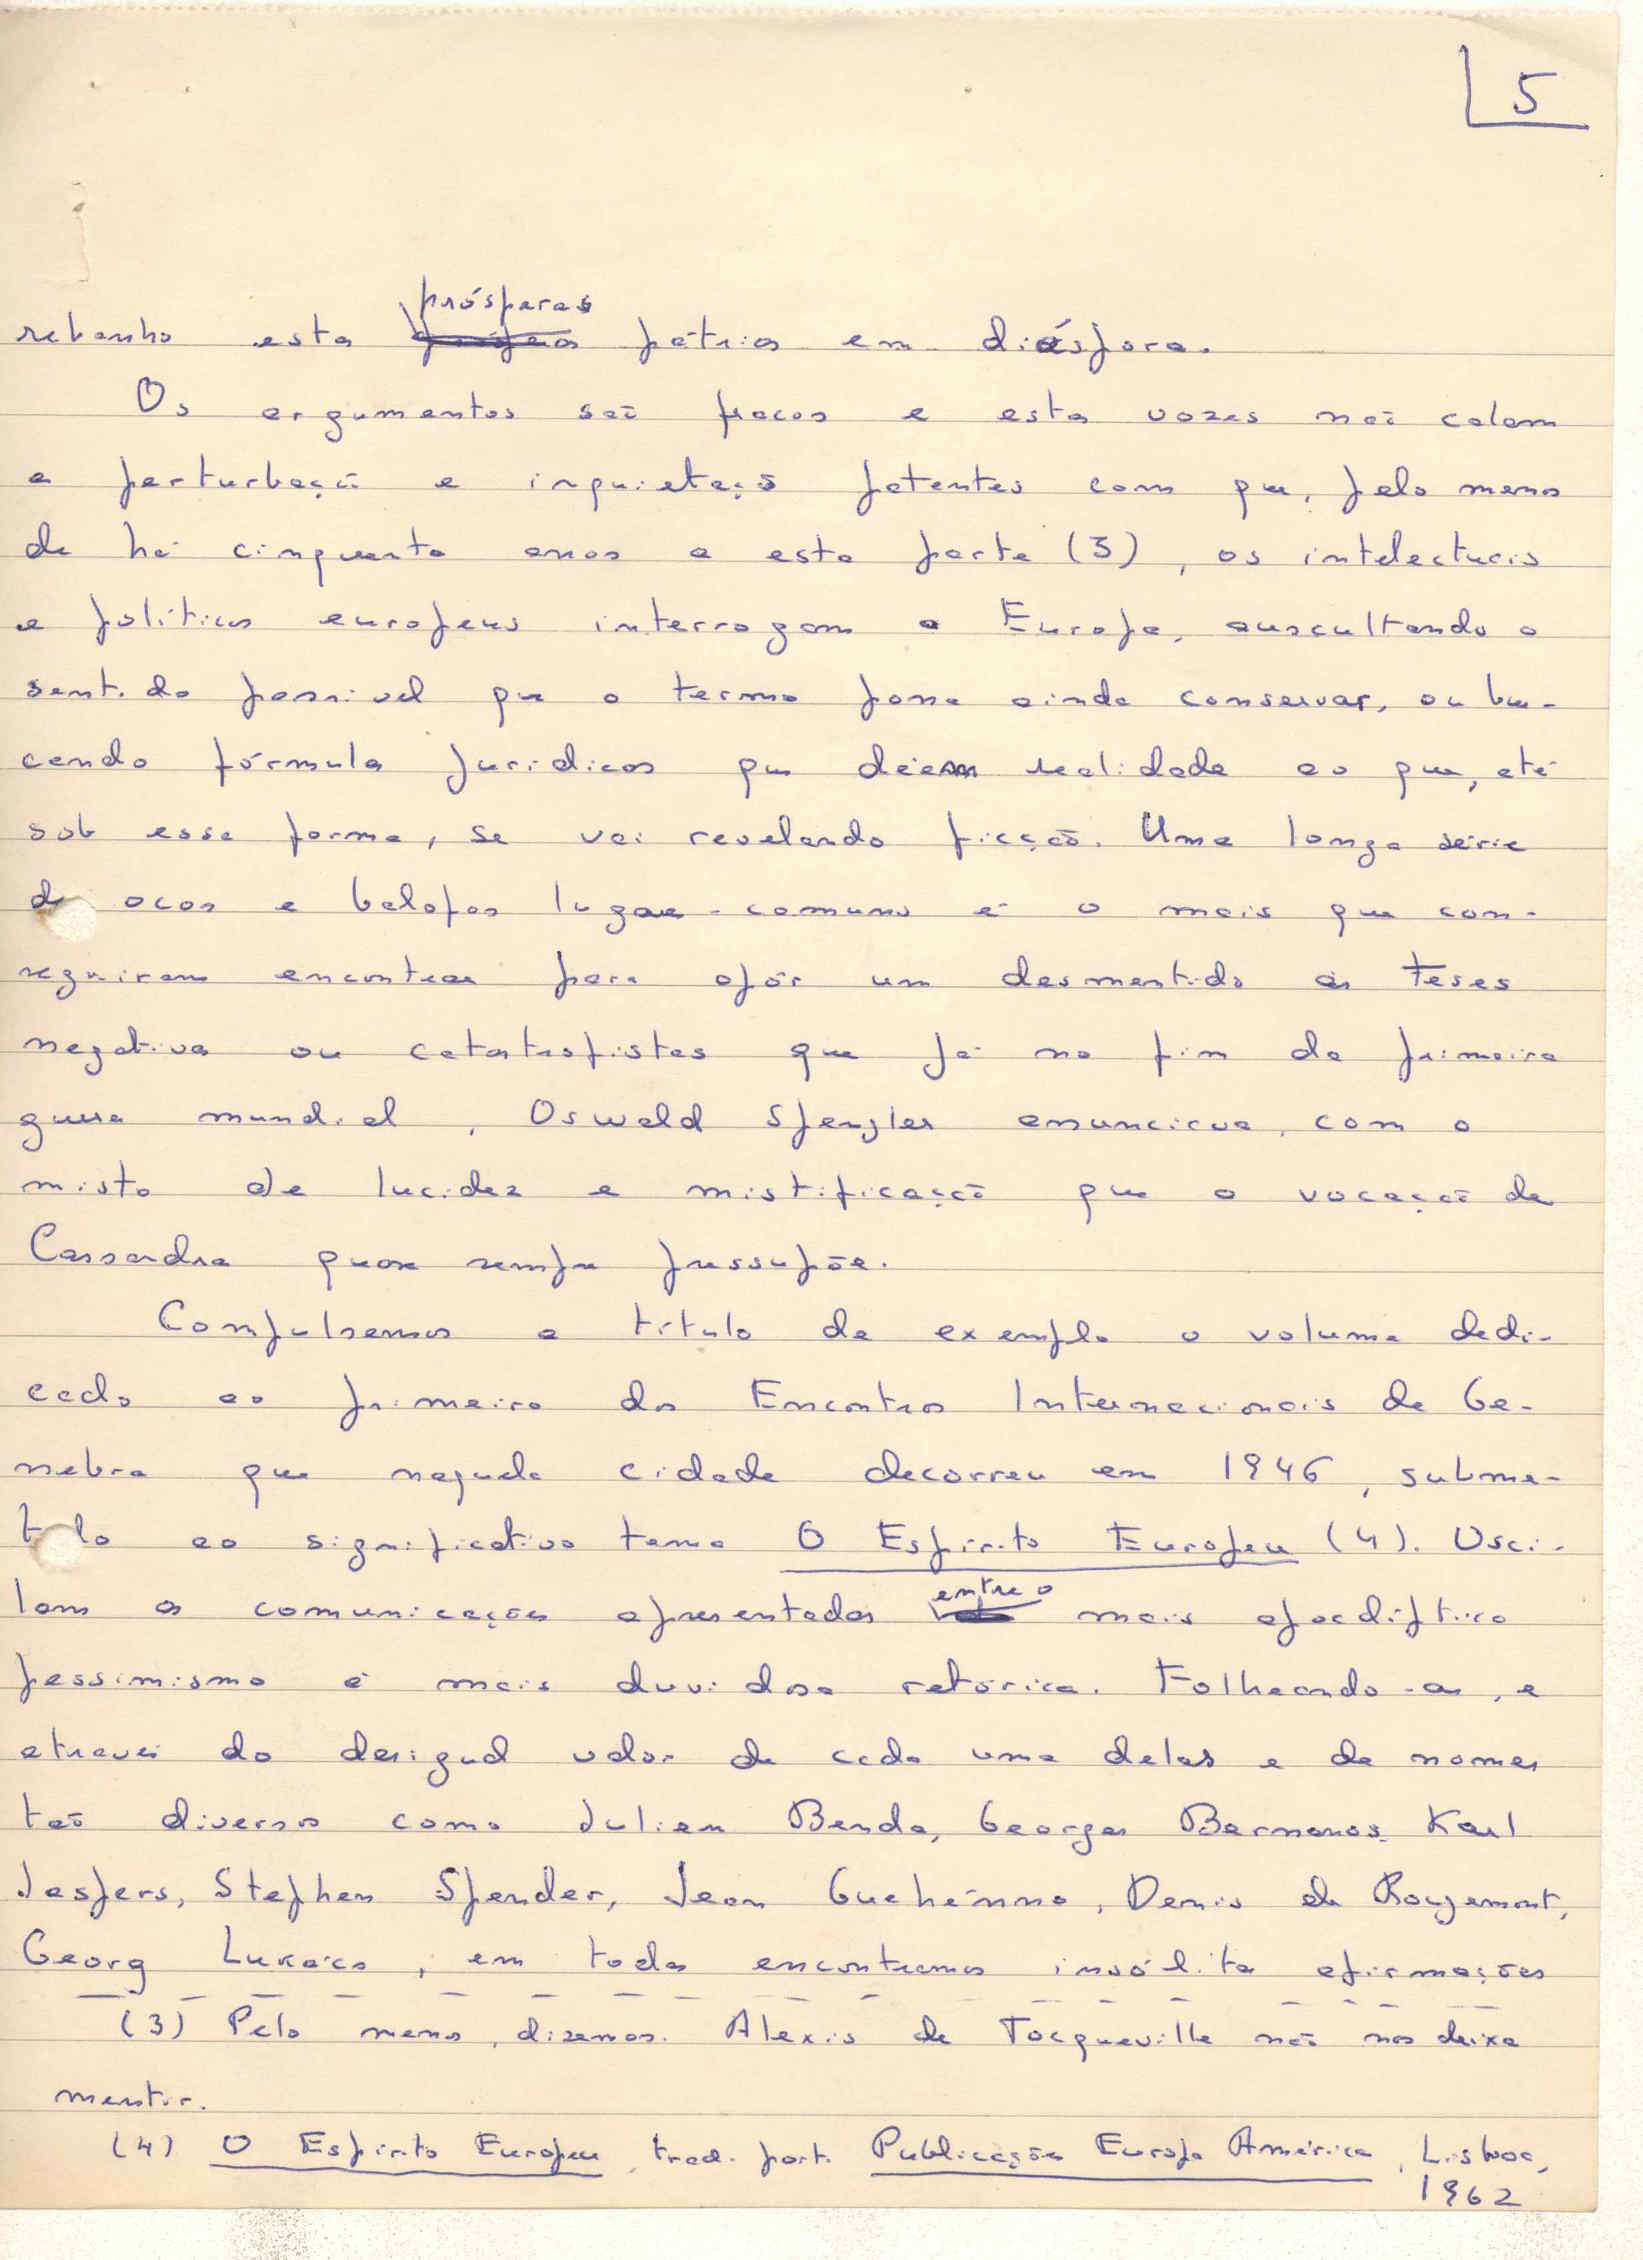 5
prósperas
rebanho estas pátrias em diáspora.
Os argumentos são fracos e estas vozes não calam
a perturbação e inquietação patentes com que, pelo menos
de há cinquenta anos a esta parte (3), os intelectuais
e políticos europeus interrogam a Europa, auscultando o
sentido possível que o termo possa ainda conservar, ou bus-
cando fórmulas jurídicas que dêem realidade ao que, até
sob essa forma, se vai revelando ficção. Uma longa série
de ocos e balofos lugares-comuns é o mais que con-
seguiram encontrar para opôr um desmentido às teses
negativas ou catastrofistas que já no fim da primeira
guerra mundial, Oswald Spengler enunciava, com o
misto de lucidez e mistificação que a vocação de
Cassandra quase sempre pressupõe.
Compulsemos a título de exemplo o volume dedi-
cado ao primeiro dos Encontros Internacionais de Ge-
nebra que naquela cidade decorreu em 1946, subme-
tido ao significativo tema O Espírito Europeu (4). Osci-
entre o
lam as comunicações apresentadas mais apocalíptico
pessimismo e mais duvidosa retórica. Folheando-as, e
através do desigual valor de cada uma delas e de nomes
tão diversos como Julien Benda, Georges Bernanos, Karl
Jaspers, Stephen Spender, Jean Guéhenno, Denis de Rougemont,
Georg Lukács, em todas encontramos insólitas afirmações
(3) Pelo menos, dizemos. Alexis de Tocqueville não nos deixa
mentir.
(4) O Espírito Europeu, trad. port. Publicações Europa América, Lisboa,
1962